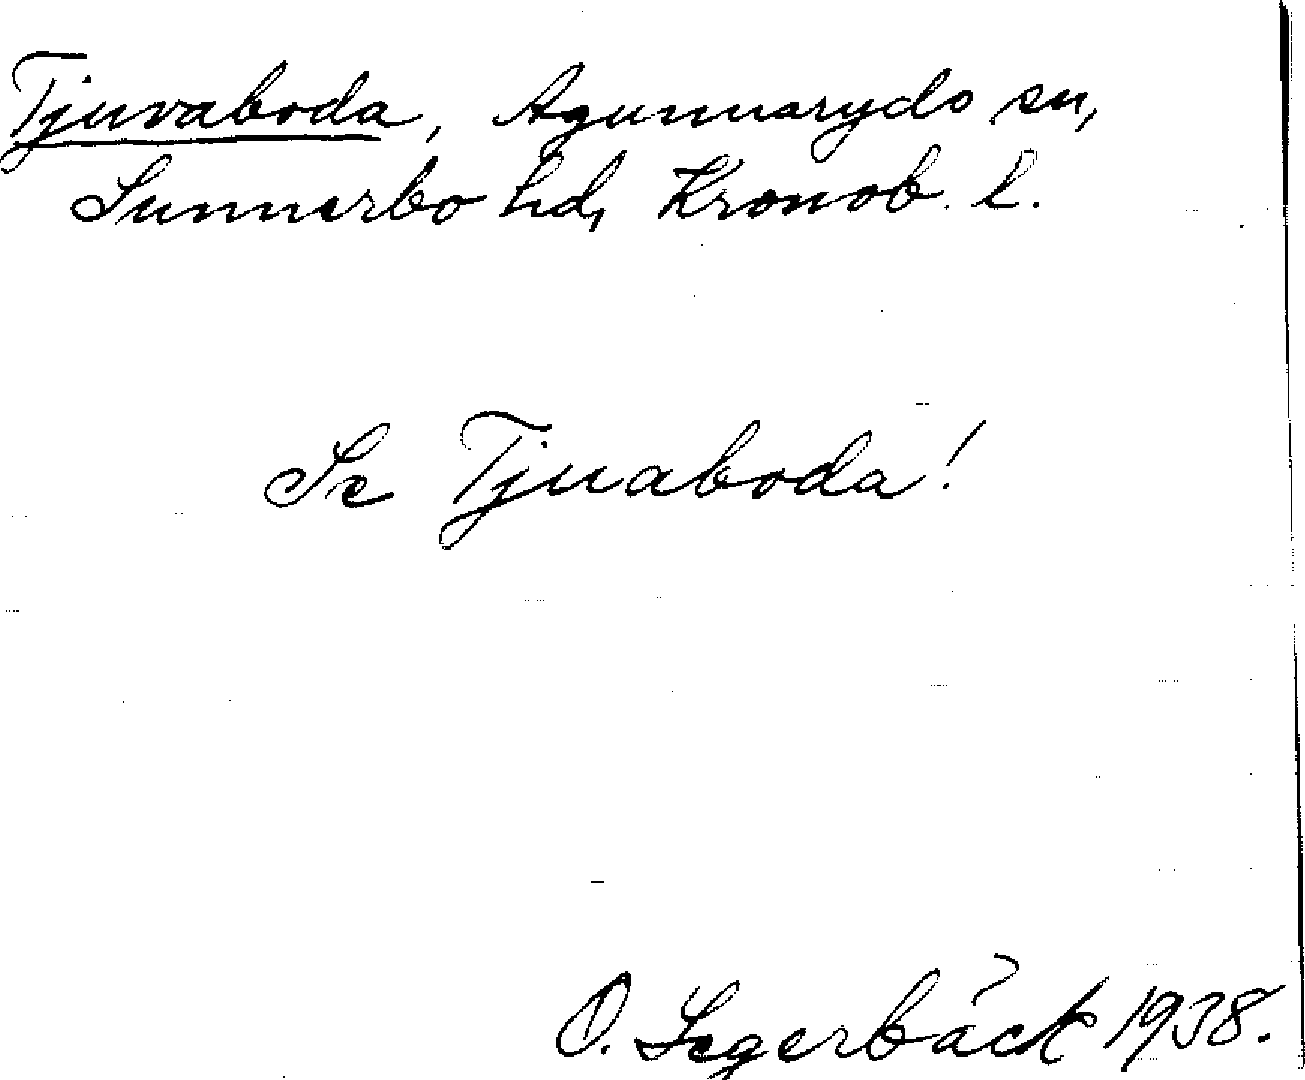 Tjuvaboda, Agunnaryds sn,
Sunnerbo hd, Kronob. l.
Se Tjuaboda!
O. Segerbäck 1938.